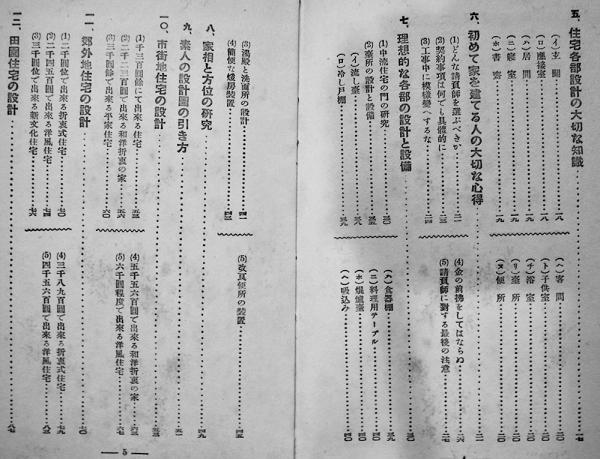 五、住宅各部設計の大切な知識……一七
(イ)玄關……一八
(ロ)應接室……一八
(ハ)居間……一八
(ニ)寢室……一九
(ホ)書齋……一九
(ヘ)客間……一九
(ト)子供室……一九
(チ)浴室……一九
(リ)臺所……一九
(ヌ)便所……二〇
六、初めて家を建てる人の大切な心得……二一
(1)どんな請負師を選ぶべきか……二一
(2)契約事項は何でも具體的に
(3)工事中に模樣變へするな……二四
(4)金の前拂をしてはならぬ
(5)請負師に對する最後の注意……二六
七、理想的な各部の設計と設備……三〇
(1)中流住宅の門の研究……三〇
(2)臺所の設計と設備……三五
(イ)流し臺……三九
(ロ)冷し戸棚……三九
(ハ)食器棚……四〇
(ニ)料理用テーブル……四〇
(ホ)煖爐臺……四〇
(ヘ)吸込み……四〇
(3)湯殿と洗面所の設計……四一
(4)簡便な煖房裝置……四三
(5)改良便所の裝置……四五
八、家相と方位の研究……四九
九、素人の設計圖の引き方……五一
一〇、市街地住宅の設計……五三
(1)千三百圓餘にて出來る住宅……五三
(2)二千二三百圓で出來る和洋折衷の家……五六
(3)三千四百圓餘で出來る平家住宅……六〇
(4)五千五六百圓で出來る和洋折衷の家
(5)六千圓程度で出來る洋風住宅……六七
一一、郊外地住宅の設計……七〇
(1)二千圓位で出來る折衷式住宅……七〇
(2)二千四五百圓で出來る洋風住宅
(3)三千圓位で出來る新文化住宅……七六
(4)三千八九百圓で出來る折衷式住宅……七九
(5)四千五六百圓で出來る洋風住宅……八三
一二、田園住宅の設計……八七
— 5 —